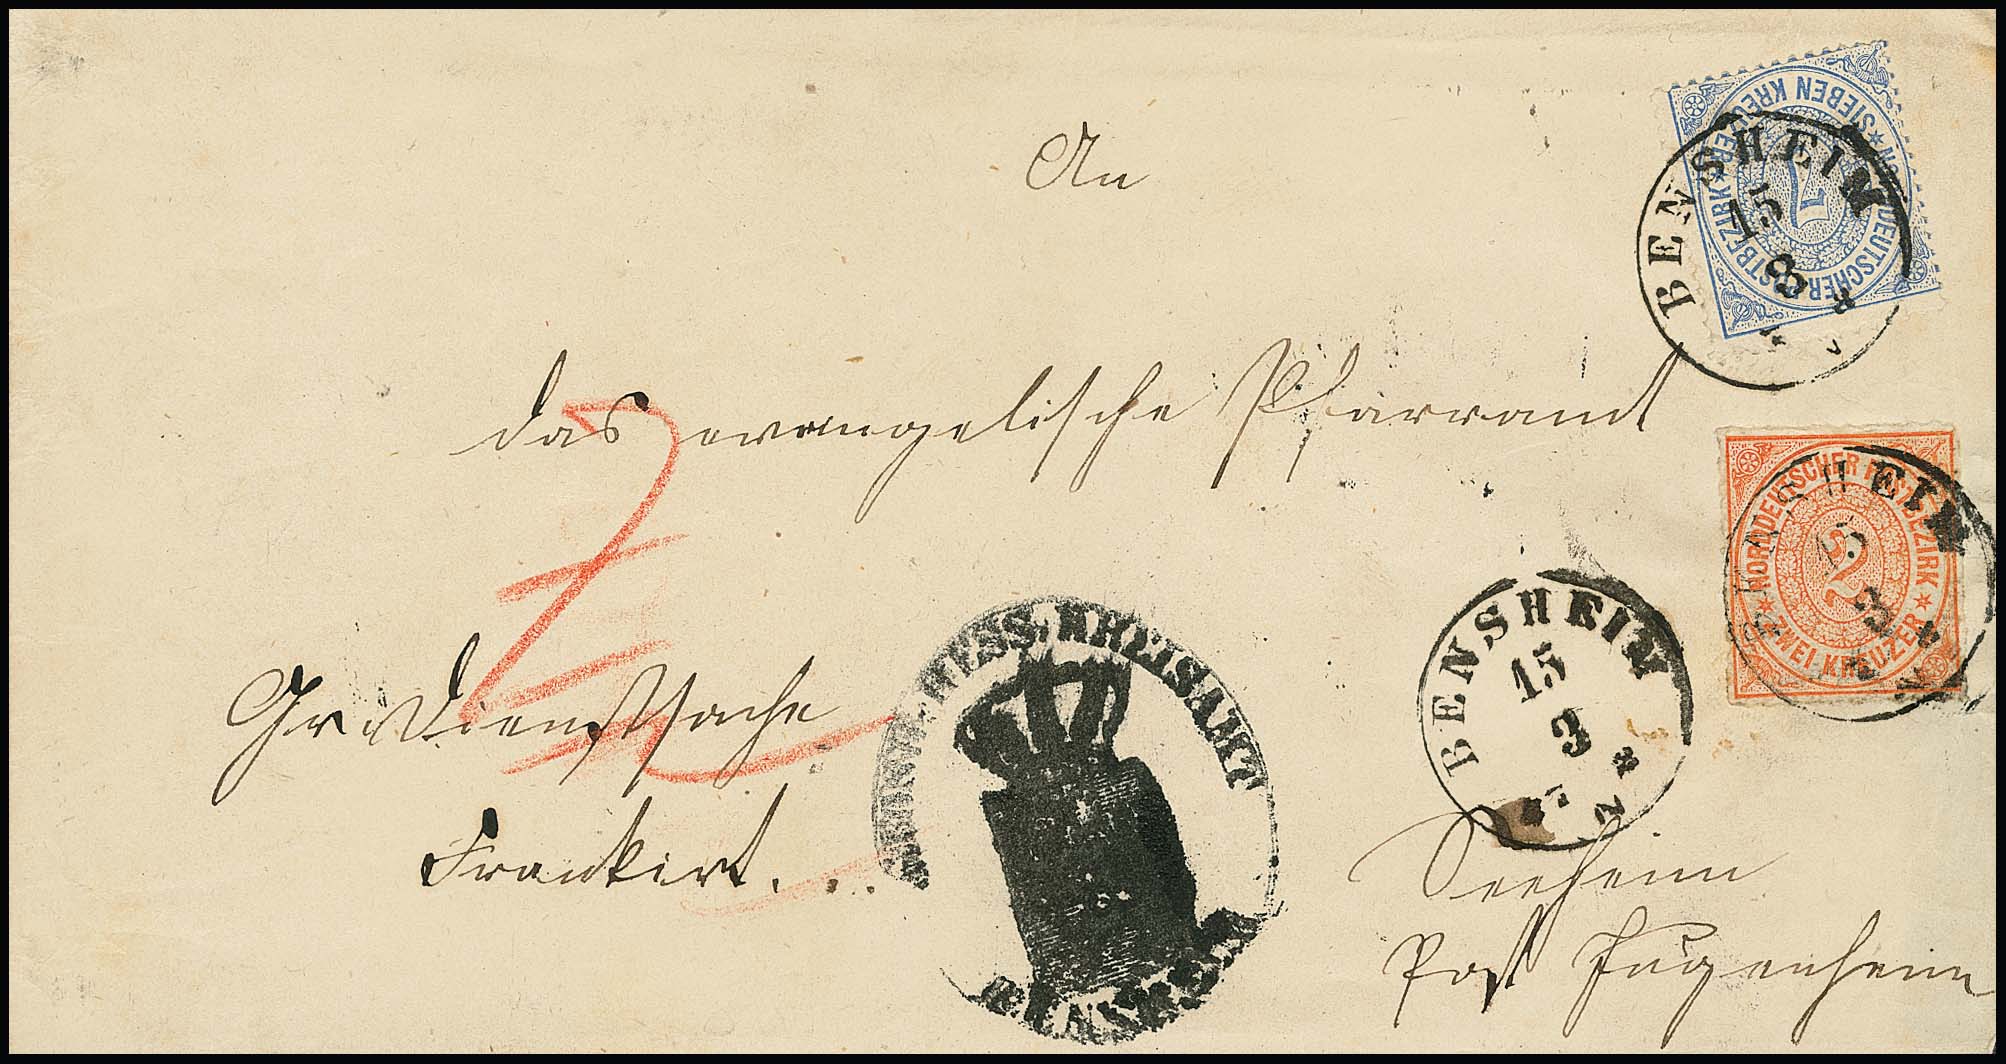 An
das evangelische Pfarramt
Gr. Dienstsache
Frankirt.
Seeheim
Post Jugenheim
NORDDEUTSCHER POSTBEZIRK
SIEBEN KREUZER
7
BENSHEIM
15
3
NORDDEUTSCHER POSTBEZIRK
ZWEI KREUZER
2
BENSHEIM
15
3
BENSHEIM
15
3
HESS. KREISAMT
BENSHEIM